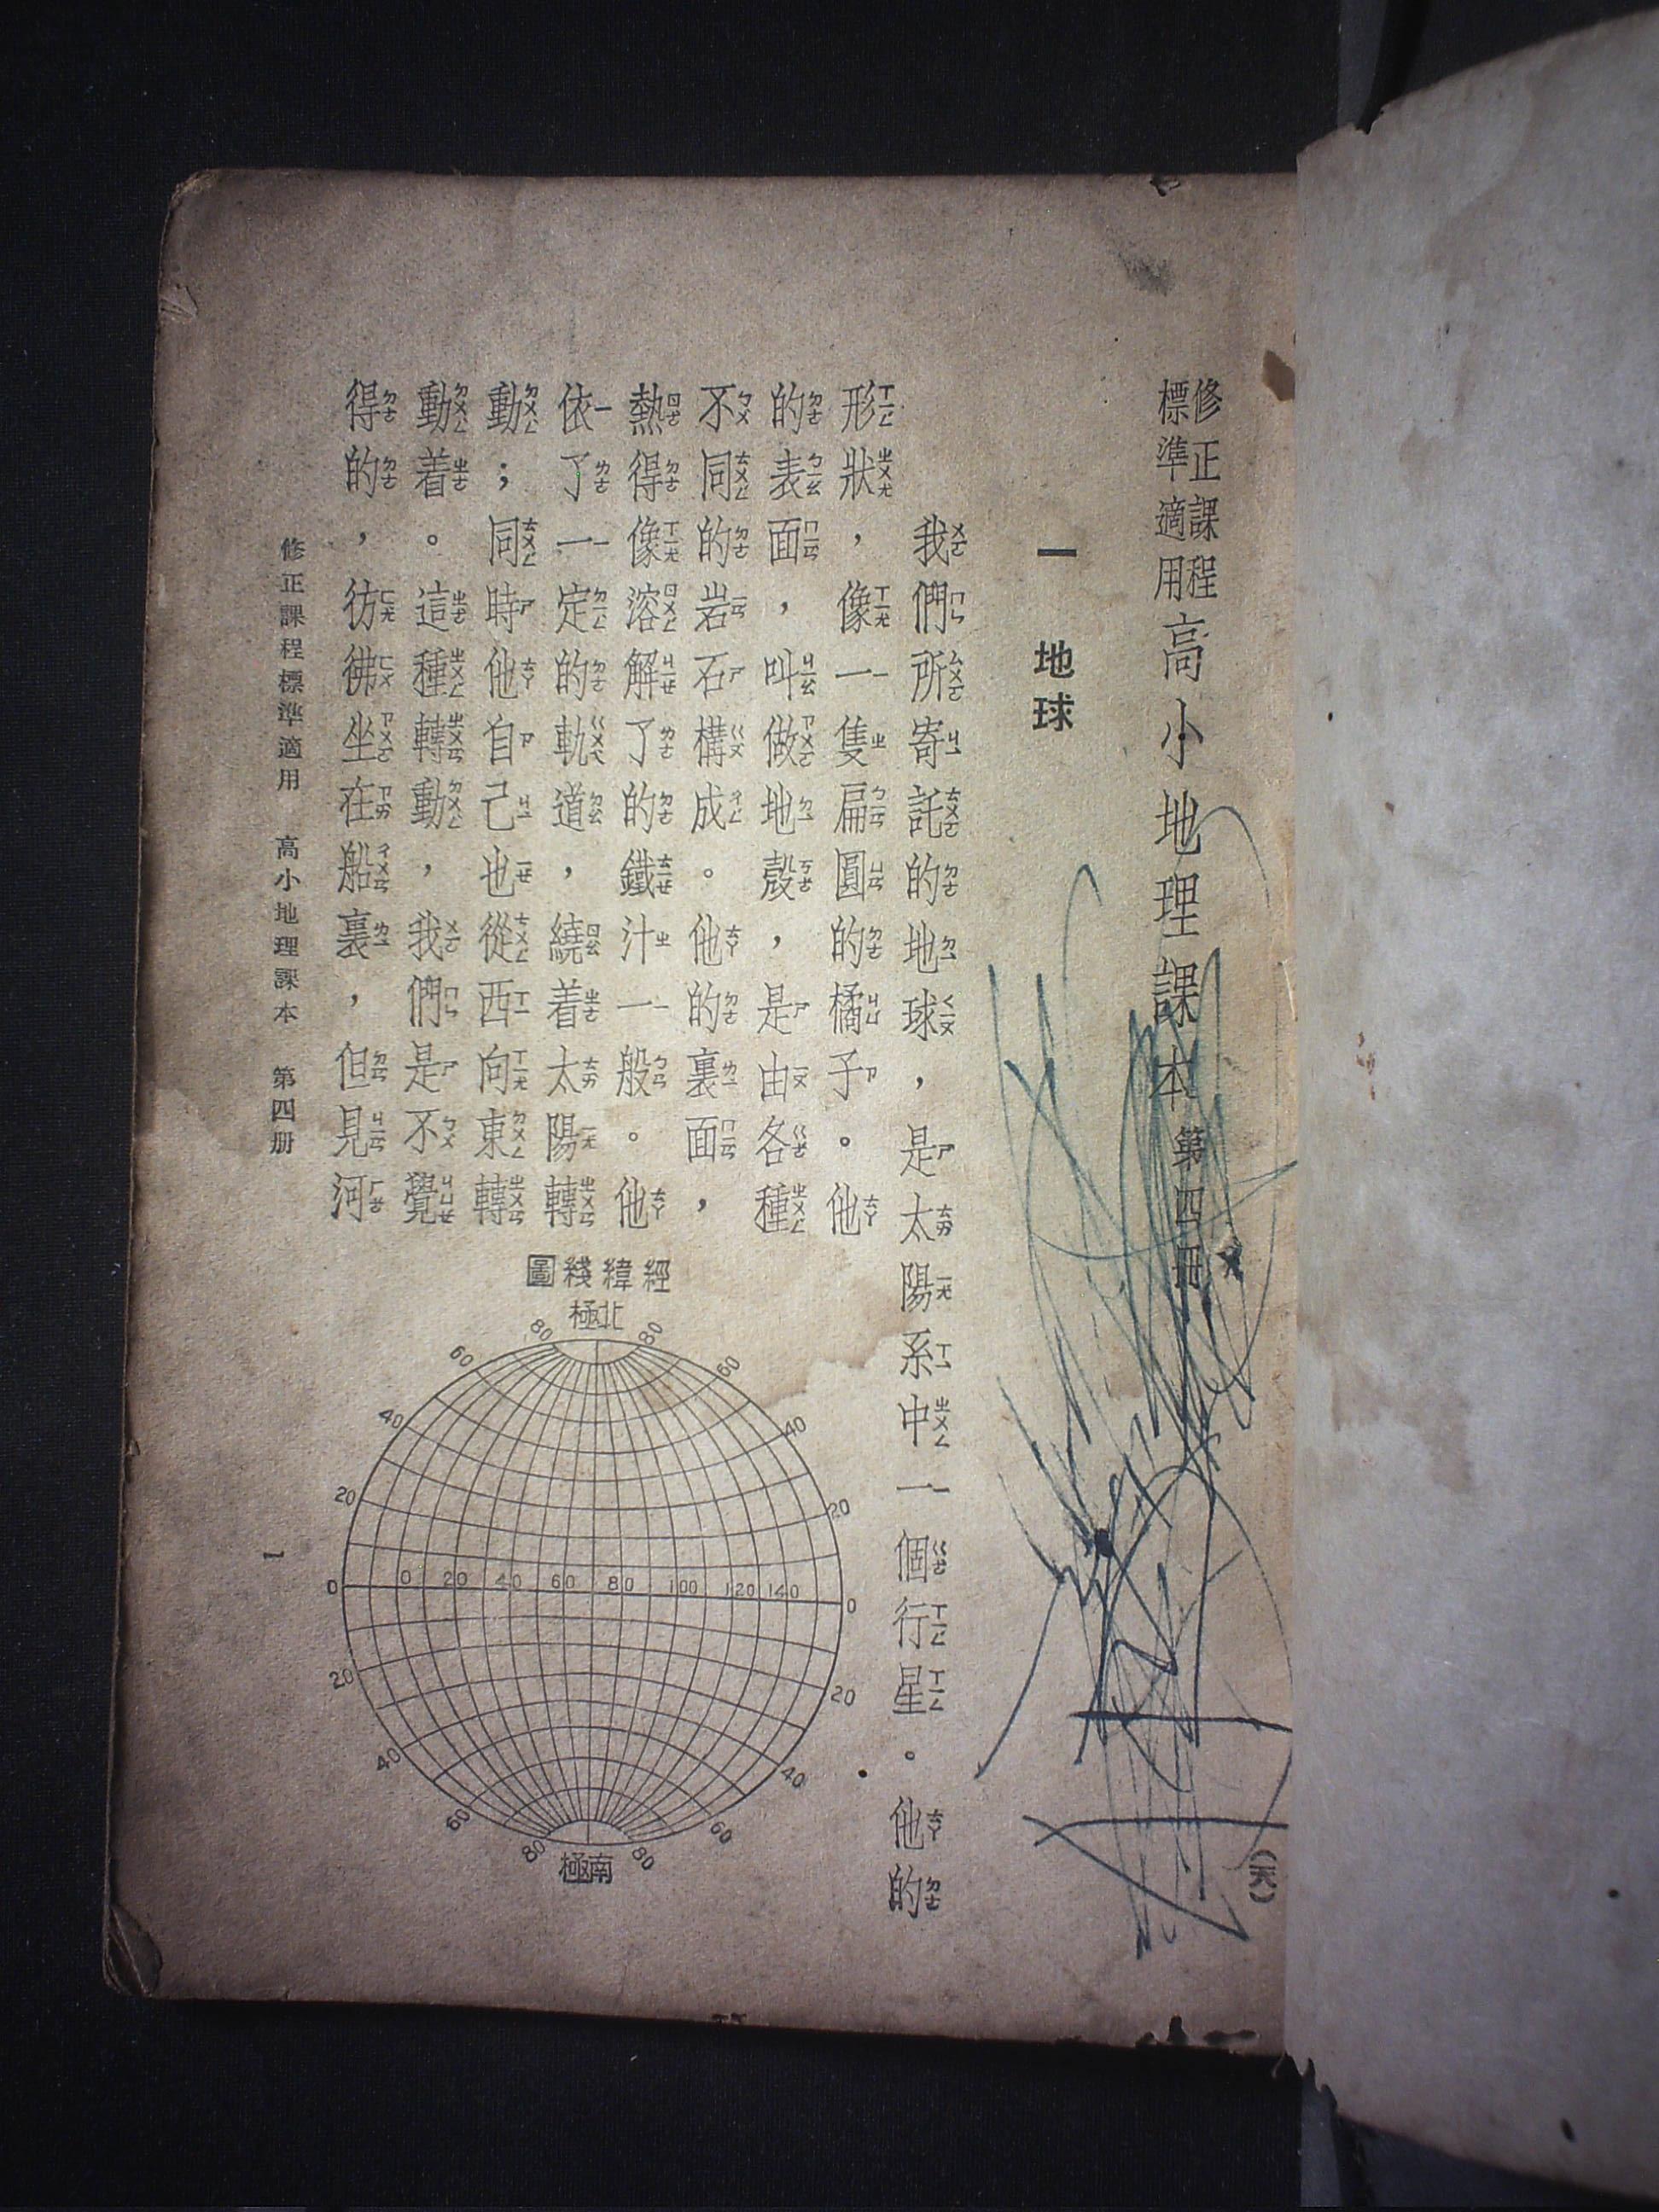 修正課程
標準適用
高小地理課本 第四冊
(天)
一 地球
我們所寄託的地球，是太陽系中一個行星。他的
形狀，像一隻扁圓的橘子。他
的表面，叫做地殼，是由各種
不同的岩石構成。他的裏面，
熱得像溶解了的鐵汁一般。他
依了一定的軌道，繞着太陽轉
動；同時他自己也從西向東轉
動着。這種轉動，我們是不覺
得的，彷彿坐在船裏，但見河
圖綫緯經
極北
80 80
60 60
40 40
20 20
0 0 20 40 60 80 100 120 140 0
20 20
40 40
60 60
80 80
極南
修正課程標準適用 高小地理課本 第四册
1